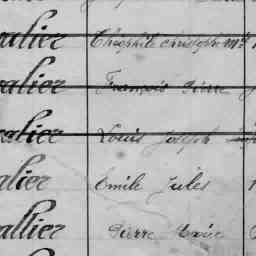 alier Théophile Christophe Mie
alier François Pierre
alier Louis Joseph
alier Emile Jules
allier Pierre Marie